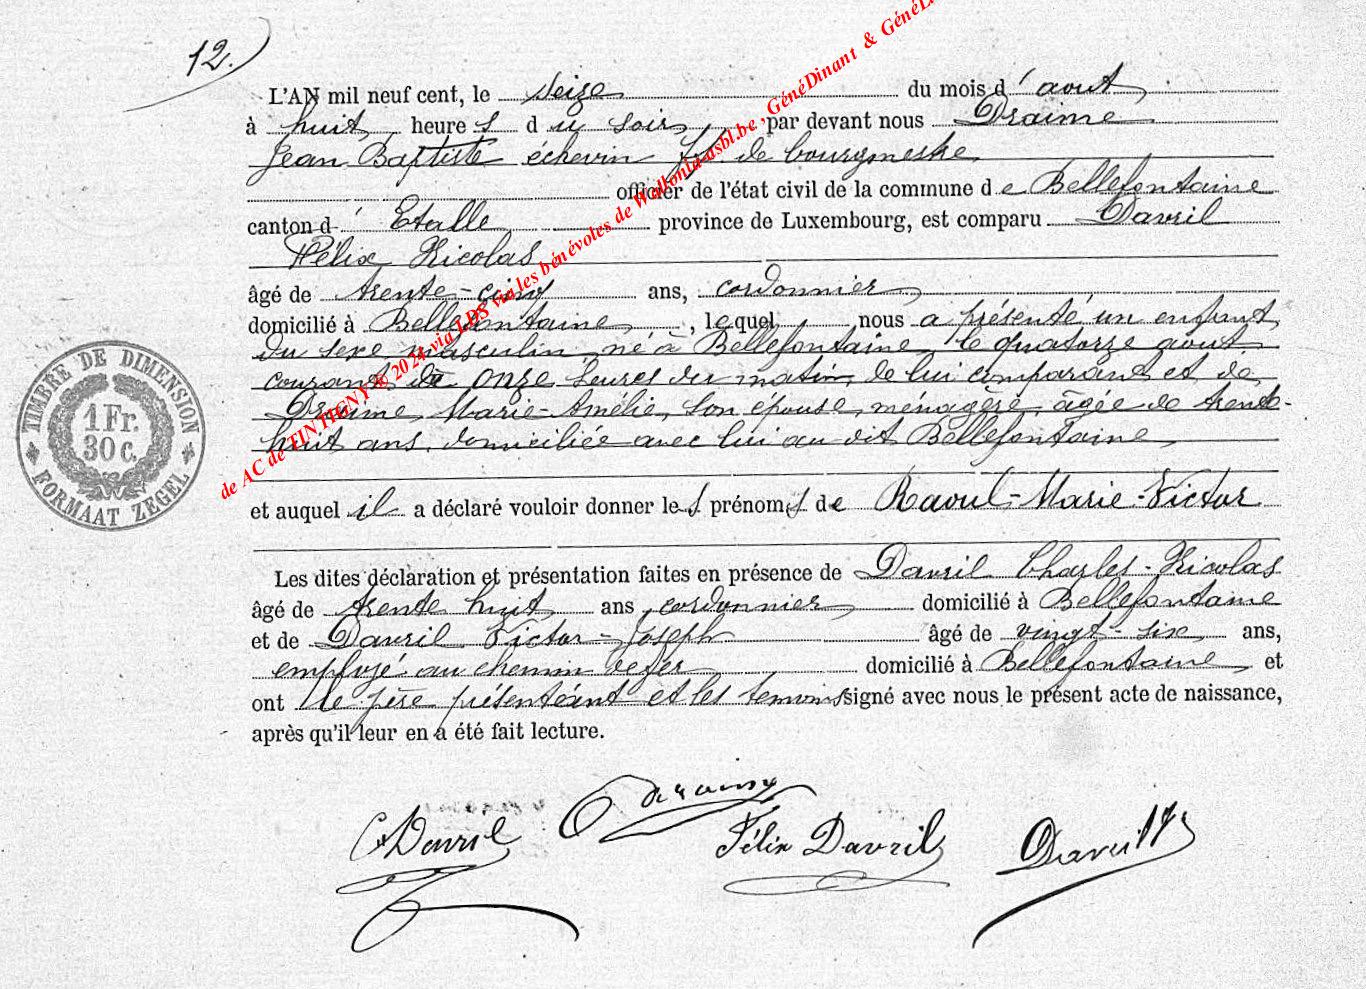 12.
L'AN mil neuf cent, le seize du mois d'aout
à huit heures du soir, par devant nous Draime
Jean Baptiste échevin ff de bourgmestre
officier de l'état civil de la commune de Bellefontaine
canton d'Etalle province de Luxembourg, est comparu Davril
Félix Nicolas
âgé de trente-cinq ans, cordonnier,
domicilié à Bellefontaine, lequel nous a présenté un enfant
du sexe masculin, né à Bellefontaine, le quatorze aout
courant à onze heures du matin, de lui comparant et de
Draime, Marie-Amélie, son épouse, ménagère, âgée de trente-
huit ans, domiciliée avec lui au dit Bellefontaine,
et auquel il a déclaré vouloir donner les prénoms de Raoul-Marie-Victor
Les dites déclaration et présentation faites en présence de Davril Charles-Nicolas
âgé de trente huit ans, cordonnier, domicilié à Bellefontaine
et de Davril Victor-Joseph âgé de vingt-six ans,
employé au chemin de fer domicilié à Bellefontaine, et
ont le père présentéant et les temoins signé avec nous le présent acte de naissance,
après qu'il leur en a été fait lecture.
TIMBRE DE DIMENSION
1 Fr.
30 c.
FORMAAT ZEGEL
de AC de TINTIGNY © 2024 via LDS via les bénévoles de Wallonia-asbl.be, GénéDinant &
Davril
Félix Davril
Davril